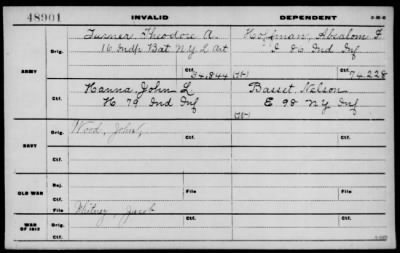 48901 INVALID DEPENDENT 3-25-6
Turner, Theodore A. Hoffman, Absalom F
Orig. 16 Indp Bat N.Y. L Art I 86 Ind Inf
ARMY Ctf. 54,844 Ctf. 74,228
Hanna, John L Basset, Nelson
Ctf. K 79 Ind Inf E 98 N.Y. Inf
Wood, John
Orig.
NAVY Ctf.
Ctf.
Rej.
OLD WAR Ctf. File File
File Whitney, Jacob
WAR OF 1812 Orig. Ctf. Ctf.